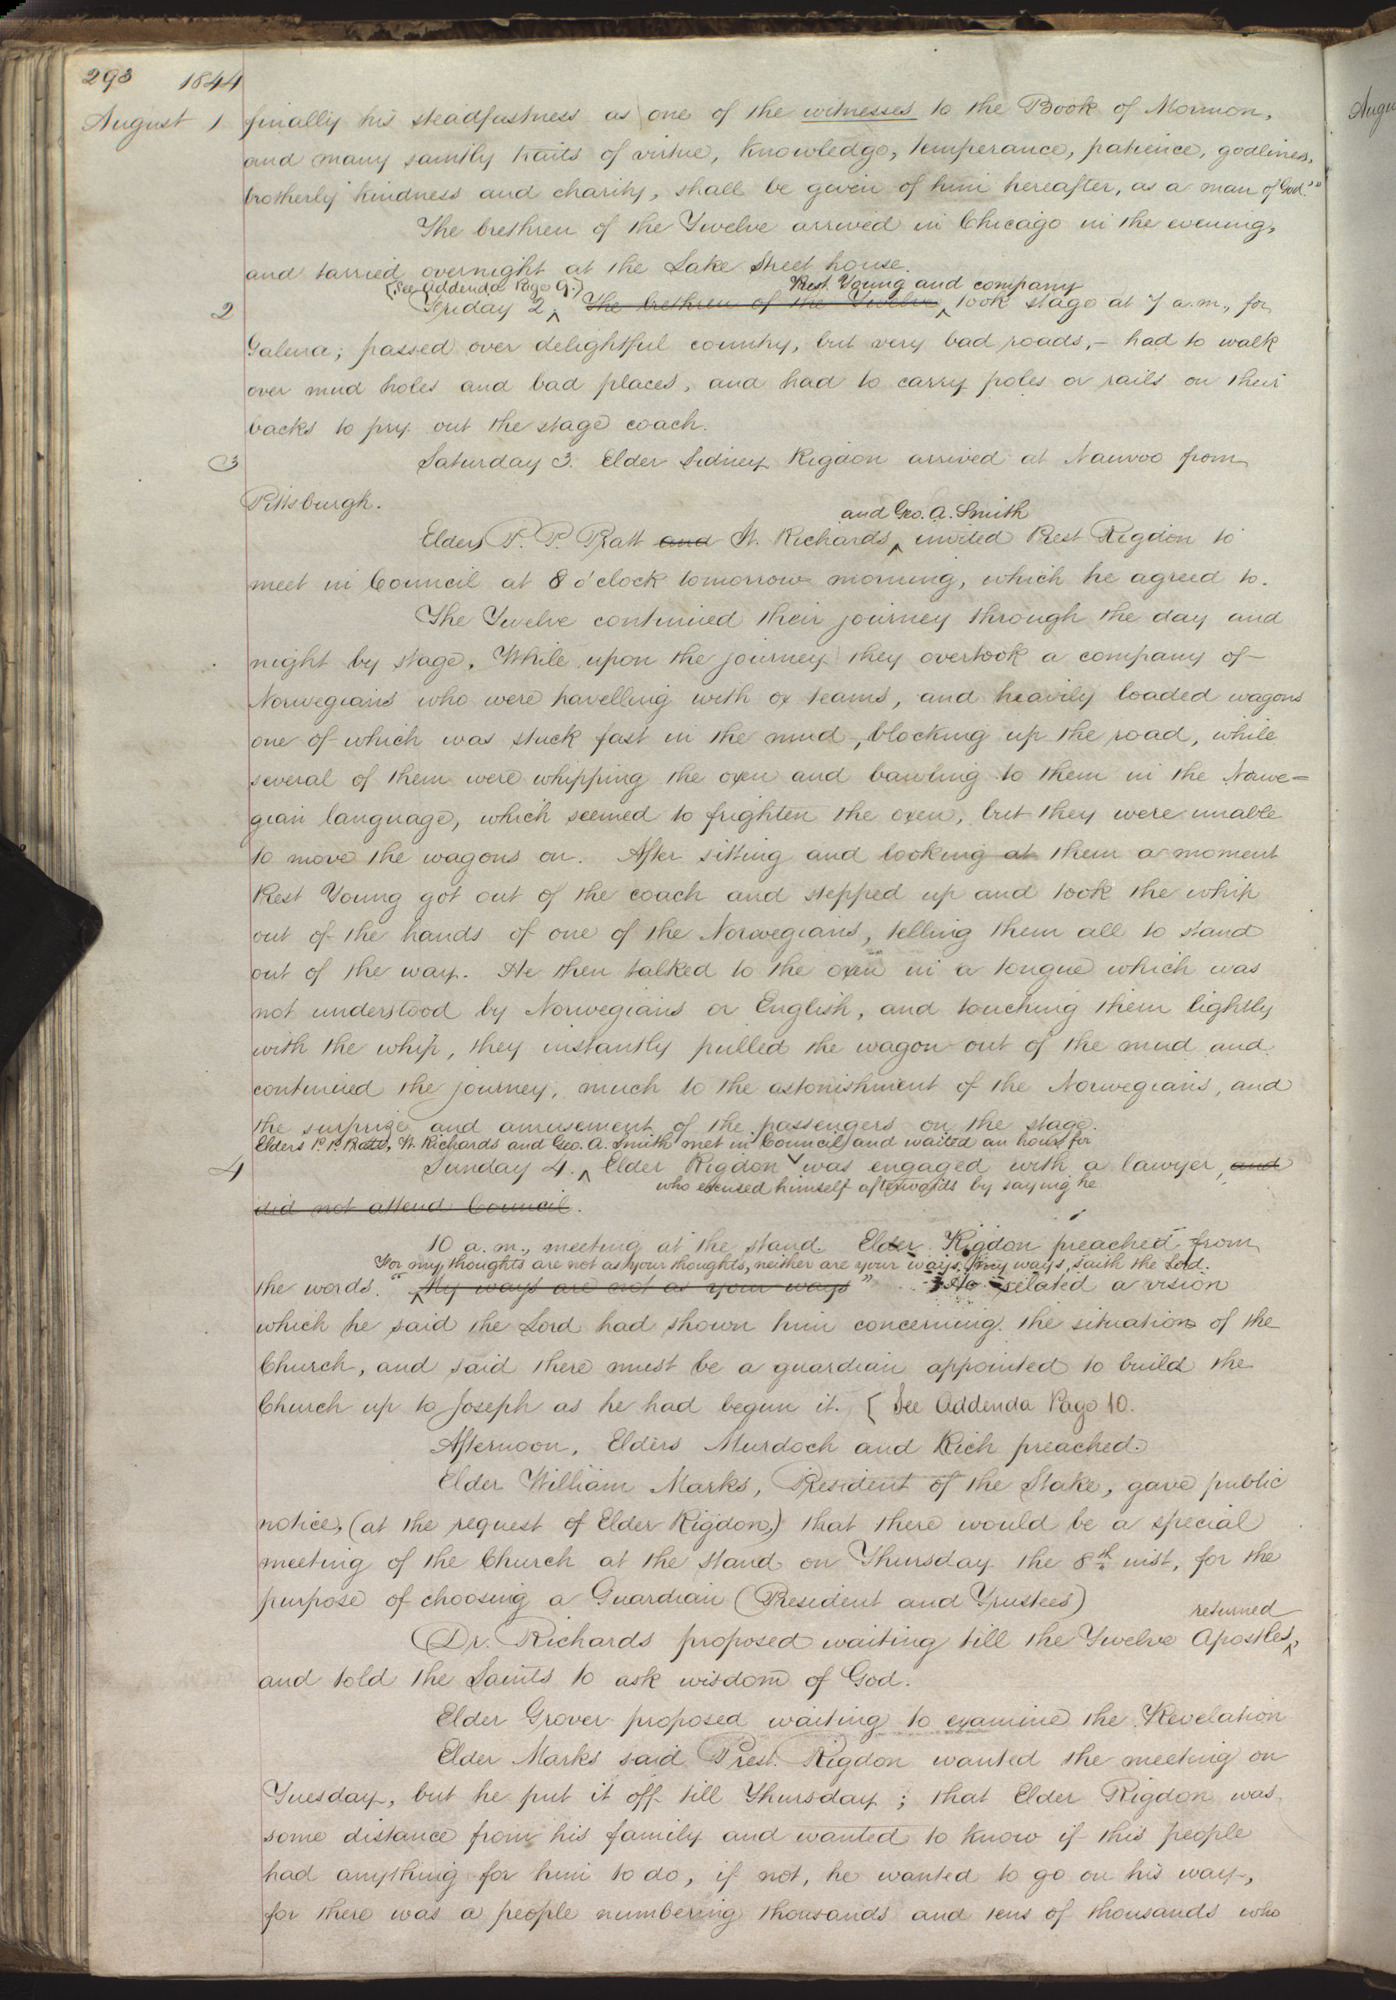 293 1844
August 1 finally his steadfastness as one of the witnesses to the Book of Mormon,
and many saintly traits of virtue, knowledge, temperance, patience, godliness,
brotherly kindness and charity, shall be given of him hereafter, as a man of God."
The brethren of the Twelve arrived in Chicago in the evening,
and tarried overnight at the Lake Street house.
(See Addenda Page 9.) Prest. Young and company
2 Friday 2. ^ The brethren of the Twelve ^ took stage at 7 a.m., for
Galena; passed over delightful country, but very bad roads,– had to walk
over mud holes and bad places, and had to carry poles or rails on their
backs to pry out the stage coach.
3 Saturday 3. Elder Sidney Rigdon arrived at Nauvoo from
Pittsburgh.
and Geo. A. Smith
Elders P. P. Pratt and W. Richards ^ invited Prest Rigdon to
meet in Council at 8 o'clock tomorrow morning, which he agreed to.
The Twelve continued their journey through the day and
night by stage. While upon the journey they overtook a company of
Norwegians who were travelling with ox teams, and heavily loaded wagons
one of which was stuck fast in the mud, blocking up the road, while
several of them were whipping the oxen and bawling to them in the Norwe=
gian language, which seemed to frighten the oxen, but they were unable
to move the wagons on. After sitting and looking at them a moment
Prest Young got out of the coach and stepped up and took the whip
out of the hands of one of the Norwegians, telling them all to stand
out of the way. He then talked to the oxen in a tongue which was
not understood by Norwegians or English, and touching them lightly
with the whip, they instantly pulled the wagon out of the mud and
continued the journey, much to the astonishment of the Norwegians, and
the surprize and amusement of the passengers on the stage.
Elders P. P. Pratt, W. Richards and Geo. A. Smith met in Council and waited an hour for
4 Sunday 4. ^ Elder Rigdon ^ was engaged with a lawyer, and
who excused himself afterwards by saying he
did not attend Council.
10 a.m., meeting at the stand. Elder Rigdon preached from
For my thoughts are not as your thoughts, neither are your ways my ways, saith the Lord.
the words. "^ My ways are not as your ways" He related a vision
which he said the Lord had shown him concerning the situation of the
Church, and said there must be a guardian appointed to build the
Church up to Joseph as he had begun it. [See Addenda Page 10.
Afternoon, Elders Murdoch and Rich preached.
Elder William Marks, President of the Stake, gave public
notice, (at the request of Elder Rigdon,) that there would be a special
meeting of the Church at the stand on Thursday the 8th inst, for the
purpose of choosing a Guardian (President and Trustees)
returned
Dr. Richards proposed waiting till the Twelve Apostles ^,
and told the Saints to ask wisdom of God.
Elder Grover proposed waiting to examine the Revelation
Elder Marks said Prest. Rigdon wanted the meeting on
Tuesday, but he put it off till Thursday; that Elder Rigdon was
some distance from his family and wanted to know if this people
had anything for him to do, if not, he wanted to go on his way,
for there was a people numbering thousands and tens of thousands who
Augu